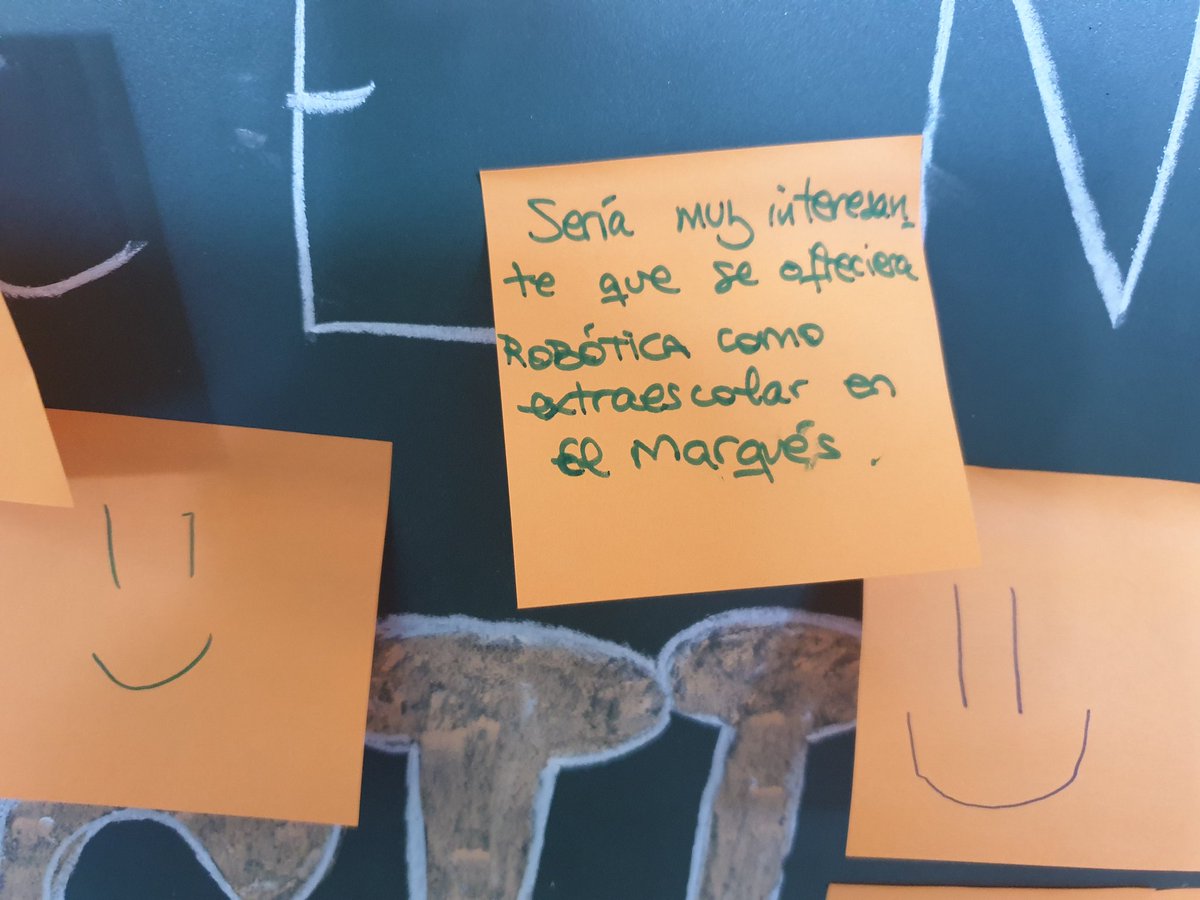 Sería muy interesan_
te que se ofreciera
ROBÓTICA como
extraescolar en
El Marqués.